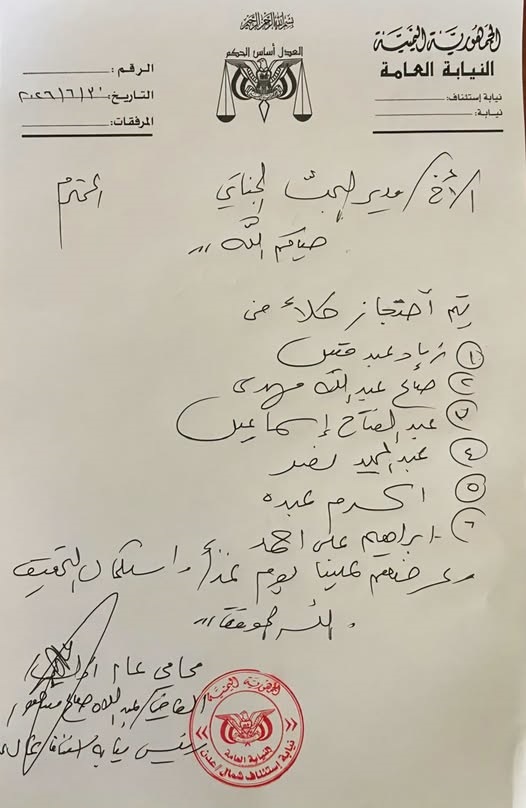 بسم الله الرحمن الرحيم
الجمهورية اليمنية
النيابة العامة
نيابة إستئناف:
نيابة:
العدل أساس الحكم
الرقم:
التاريخ: ٢٠٢٦/٦/٣٠
المرفقات:
الأخ/ مدير البحث الجنائي المحترم
حياكم الله
يتم أحتجاز كلاً من
١ زياد عبد
٢ صالح عبدالله مهدي
٣ عبدالفتاح إسماعيل
٤ نصر
٥ اكرم عبده
٦- ابراهيم علي احمد
وعرضهم علينا يوم غداً واستكمال التحقيق
الله الموفق،،
محامي عام
القاضي/ عبدالله صالح
رئيس نيابة استئناف
الجمهورية اليمنية
النيابة العامة
نيابة إستئناف شمال / عدن